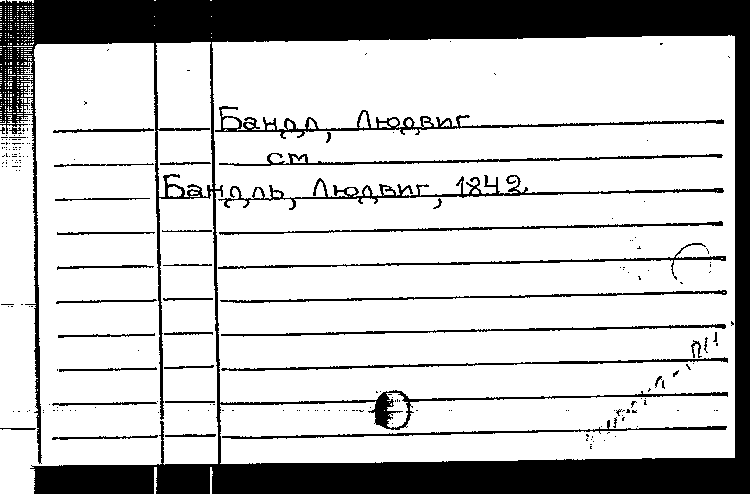 Бандл, Людвиг
см.
Бандль, Людвиг, 1842.